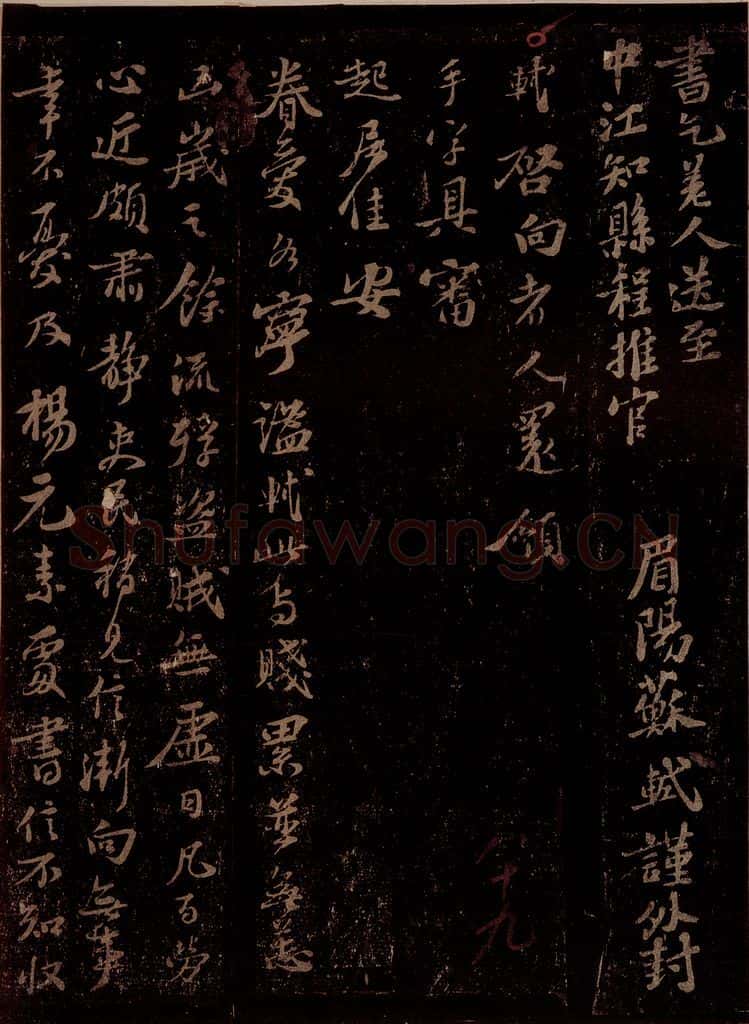 書乞差人送至
中江知縣程推官
眉陽蘇軾謹外封
軾啓向者人還領
手字具審
起居佳安
眷愛各寧謐軾此与賤累並無恙
凶歲之餘流殍盜賊無虛日凡百勞
心近頗肅靜吏民稍見信漸向無事
幸不憂及楊元素處書信不知收
八十九
Shufawang.CN